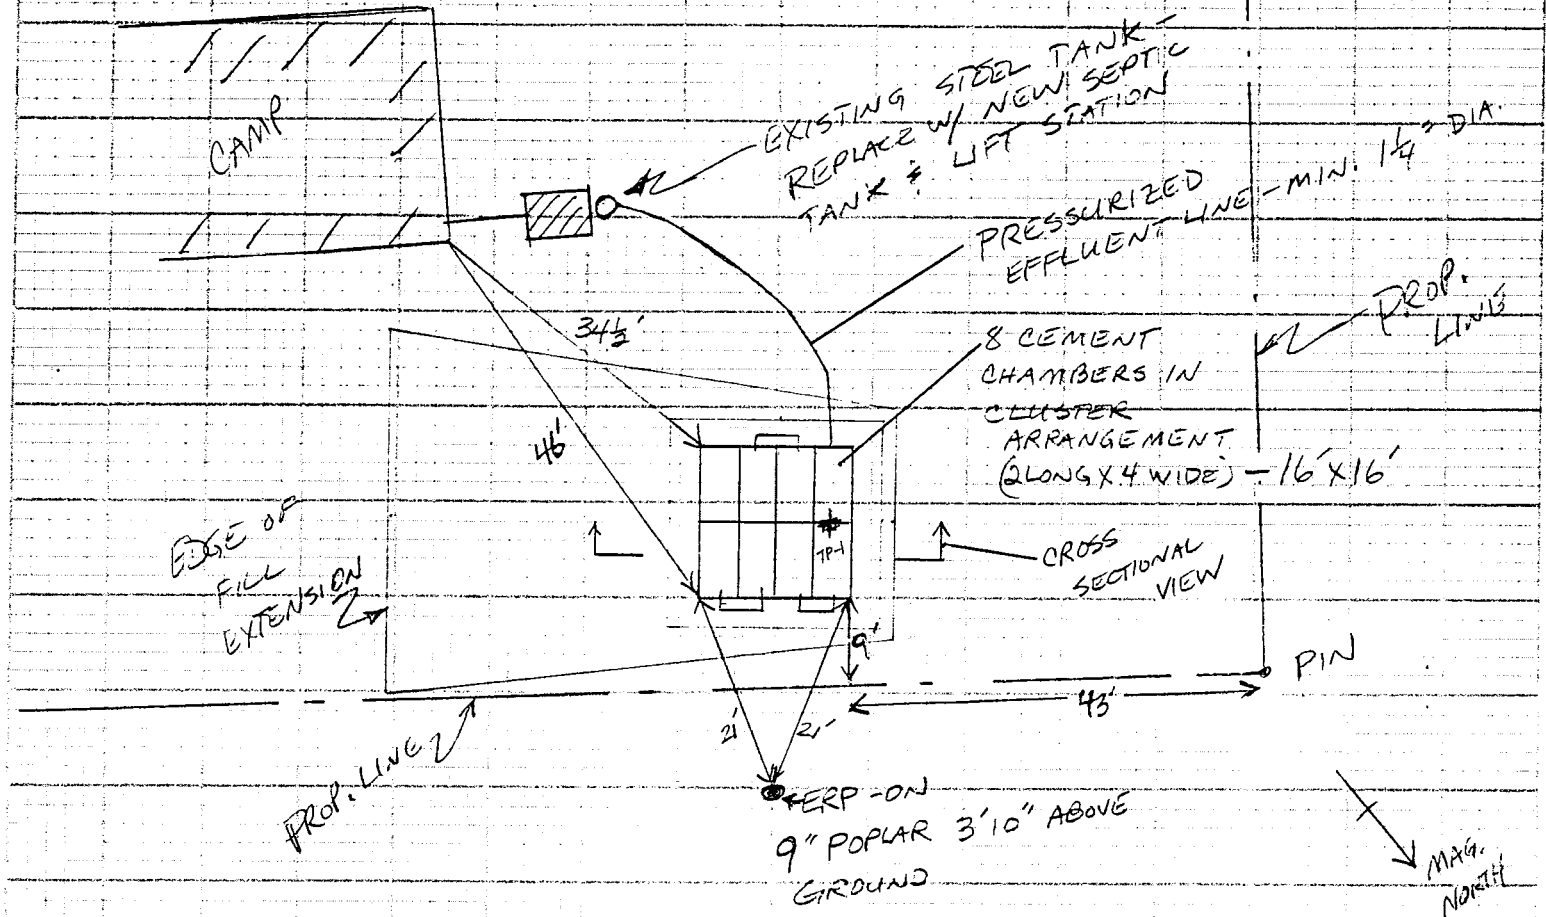 CAMP
EXISTING STEEL TANK -
REPLACE W/ NEW SEPTIC
TANK & LIFT STATION
PRESSURIZED
EFFLUENT LINE - MIN. 1¼" DIA.
PROP.
LINE
34½'
46'
8 CEMENT
CHAMBERS IN
CLUSTER
ARRANGEMENT
(2 LONG X 4 WIDE) - 16' X 16'
TP-1
EDGE OF
FILL
EXTENSION
CROSS
SECTIONAL
VIEW
9'
PIN
43'
21'
21'
PROP. LINE
ERP - ON
9" POPLAR 3'10" ABOVE
GROUND
MAG.
NORTH